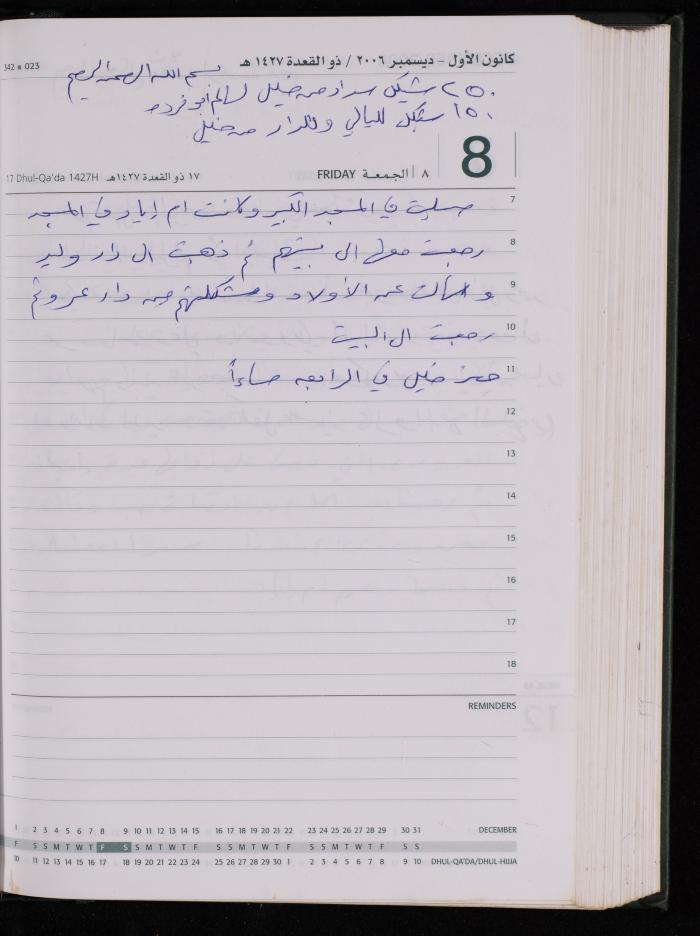 كانون الأول - ديسمبر ٢٠٠٦ / ذو القعدة ١٤٢٧ هـ
342 • 023
بسم الله الرحمن الرحيم
٢٥٠ شيكل سداد من خليل لسالم ابو فرده
١٥٠ شيكل لليالي وللدار من خليل
8
17 Dhul-Qa'da 1427H ١٧ ذو القعدة ١٤٢٧هـ
FRIDAY ٨ الجمعة
7 صليت في المسجد الكبير وكانت ام اياد في المسجد
8 رجعت معها الى بيتهم ثم ذهبت الى دار وليد
9 وسألت عن الأولاد ومشكلتهم من دار عمر وثم
10 رجعت الى البيت
11 حضر خليل في الرابعه مساءاً
12
13
14
15
16
17
18
REMINDERS
1 2 3 4 5 6 7 8 9 10 11 12 13 14 15 16 17 18 19 20 21 22 23 24 25 26 27 28 29 30 31 DECEMBER
F S S M T W T F S S M T W T F S S M T W T F S S M T W T F S S
10 11 12 13 14 15 16 17 18 19 20 21 22 23 24 25 26 27 28 29 30 1 2 3 4 5 6 7 8 9 10 DHUL-QA'DA/DHUL-HIJJA